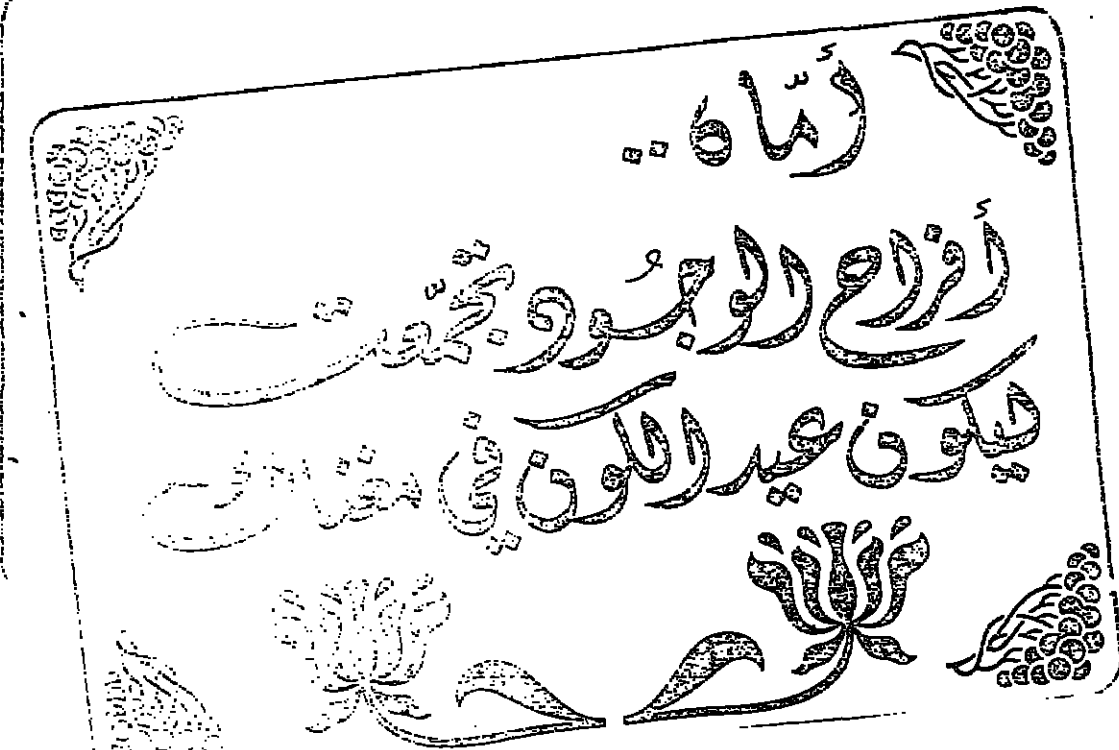 أمّاه..
أفراح الوجُود تجمّعت
ليكون عيد الكون في